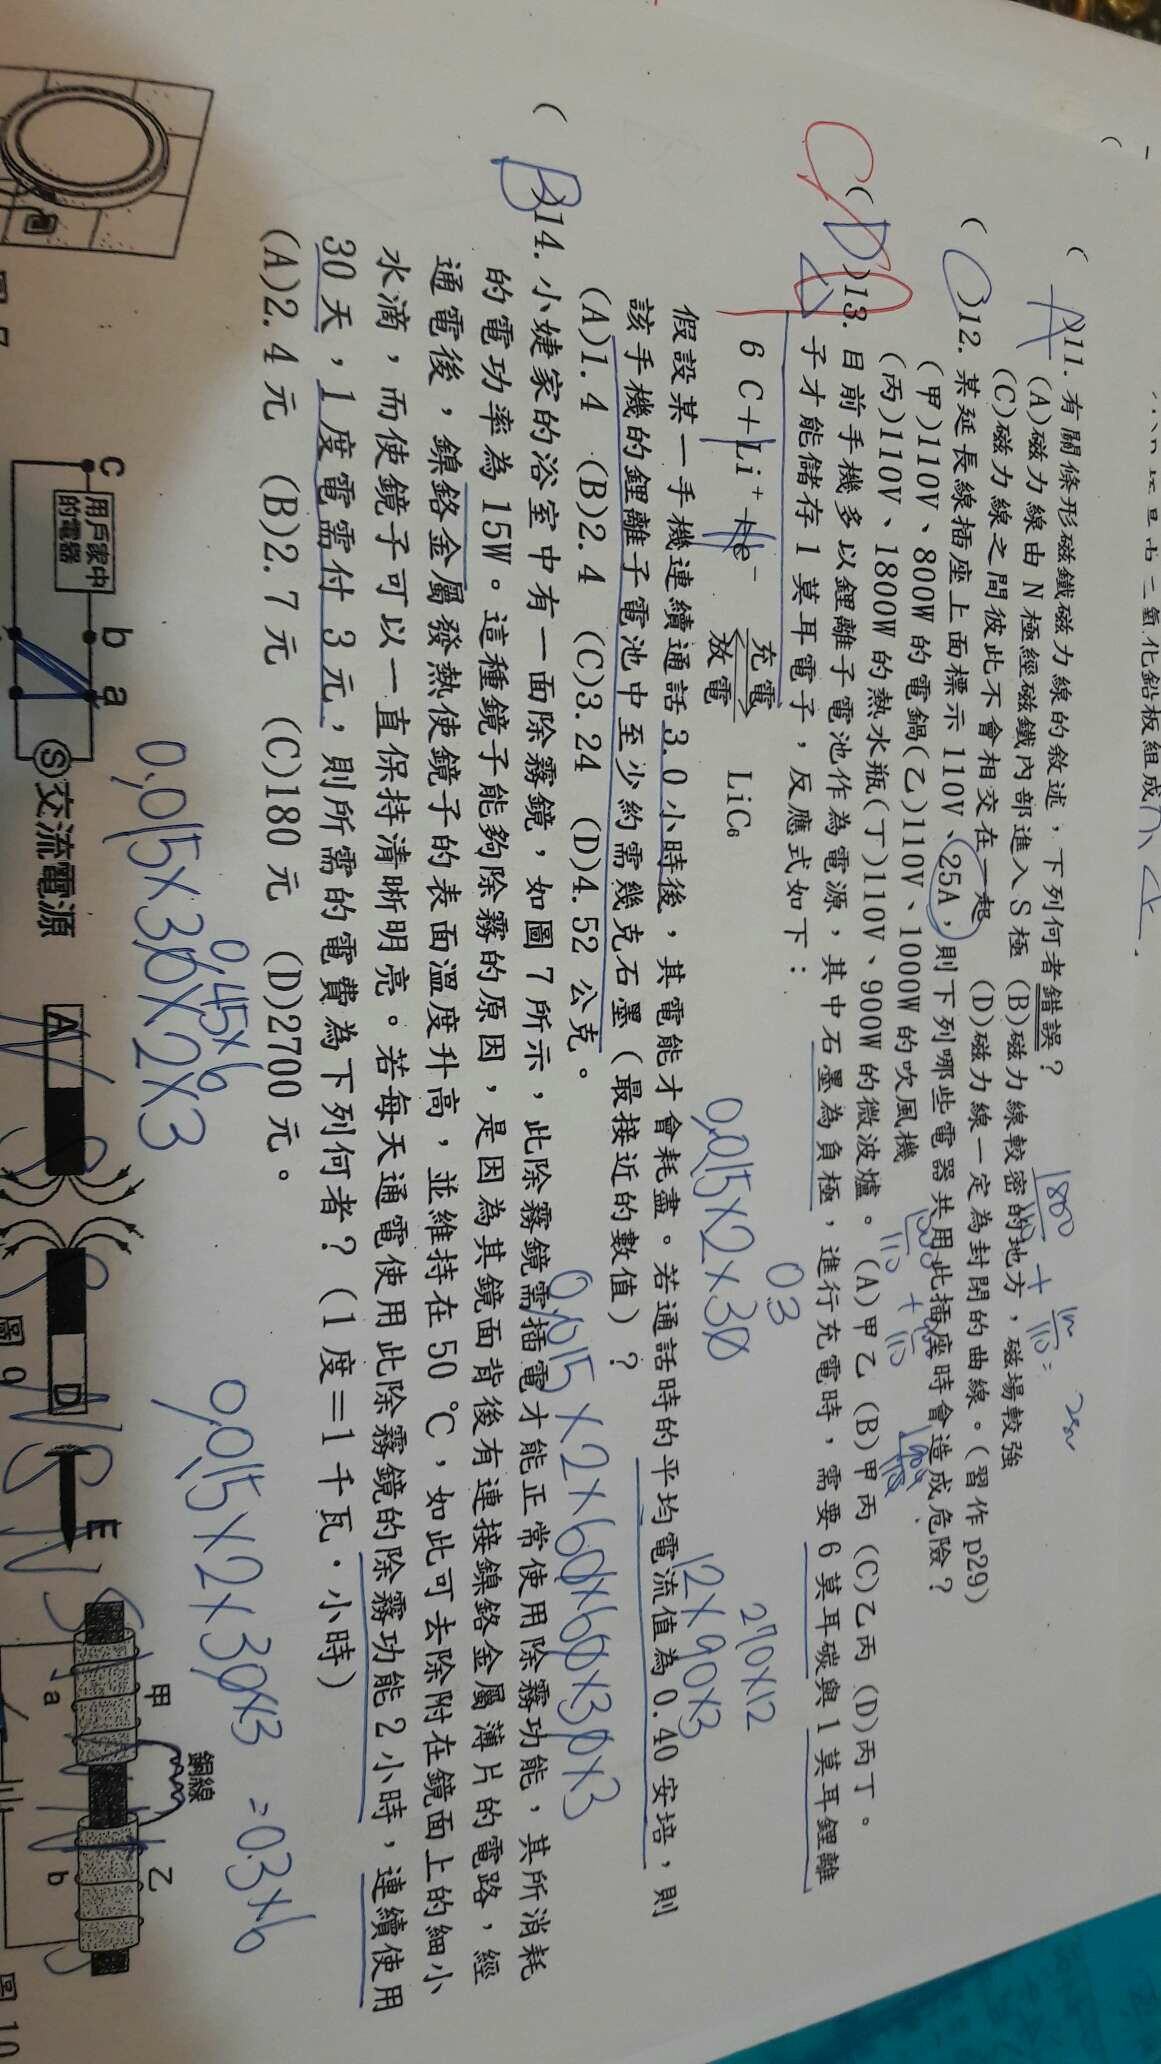 二氧化鉛板組成
( A )11. 有關條形磁鐵磁力線的敘述，下列何者錯誤？
(A)磁力線由 N 極經磁鐵內部進入 S 極 (B)磁力線較密的地方，磁場較強
(C)磁力線之間彼此不會相交在一起 (D)磁力線一定為封閉的曲線。(習作 p29)
( C )12. 某延長線插座上面標示 110V、25A，則下列哪些電器共用此插座時會造成危險？
(甲)110V、800W 的電鍋(乙)110V、1000W 的吹風機
(丙)110V、1800W 的熱水瓶(丁)110V、900W 的微波爐。(A)甲乙 (B)甲丙 (C)乙丙 (D)丙丁。
C ( D )13. 目前手機多以鋰離子電池作為電源，其中石墨為負極，進行充電時，需要 6 莫耳碳與 1 莫耳鋰離
子才能儲存 1 莫耳電子，反應式如下：
充電
6 C＋Li⁺＋e⁻ ⇌ LiC₆
放電
假設某一手機連續通話 3.0 小時後，其電能才會耗盡。若通話時的平均電流值為 0.40 安培，則
該手機的鋰離子電池中至少約需幾克石墨(最接近的數值)？
(A)1.4 (B)2.4 (C)3.24 (D)4.52 公克。
( B )14. 小婕家的浴室中有一面除霧鏡，如圖 7 所示，此除霧鏡需插電才能正常使用除霧功能，其所消耗
的電功率為 15W。這種鏡子能夠除霧的原因，是因為其鏡面背後有連接鎳鉻金屬薄片的電路，經
通電後，鎳鉻金屬發熱使鏡子的表面溫度升高，並維持在 50 ℃，如此可去除附在鏡面上的細小
水滴，而使鏡子可以一直保持清晰明亮。若每天通電使用此除霧鏡的除霧功能 2 小時，連續使用
30 天，1 度電需付 3 元，則所需的電費為下列何者？(1 度＝1 千瓦‧小時)
(A)2.4 元 (B)2.7 元 (C)180 元 (D)2700 元。
0.3
270×12
0.015×2×30
12×90×3
0.015×2×60×60×30×3
0.45×6
0.015×30×2×3
0.015×2×30×3 =0.3×6
圖 7
c 用戶家中的電器 b a
S 交流電源
A D E
圖 9
甲 銅線 乙
a b
圖 10